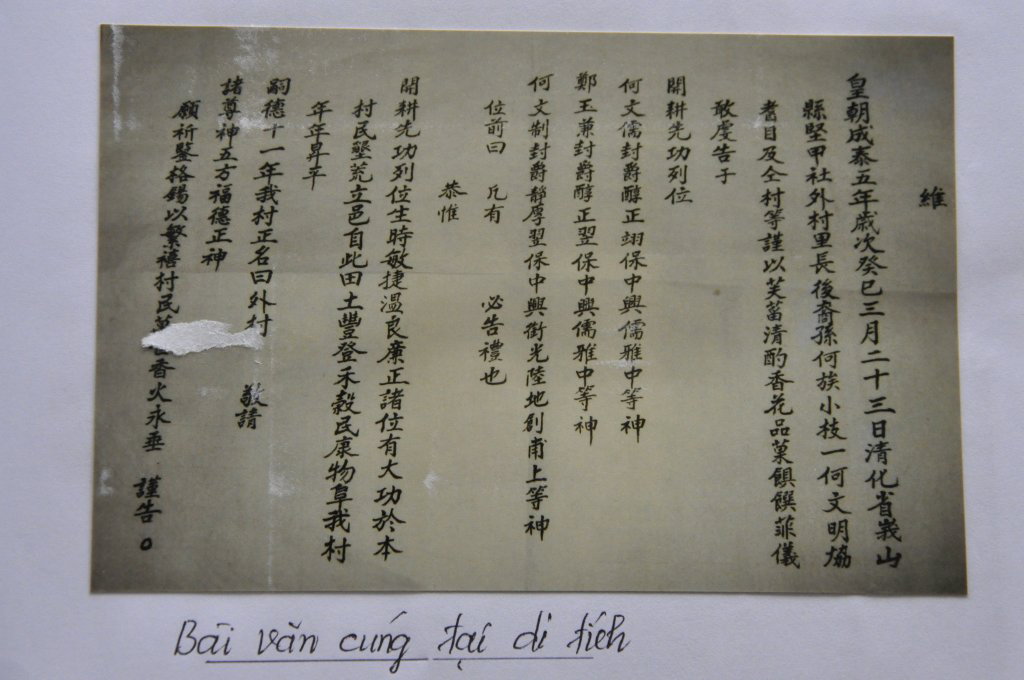 維
皇朝成泰五年歲次癸巳三月二十三日清化省峩山
縣堅甲社外村里長後裔孫何族小枝一何文明協
耆目及仝村等謹以芙蒥清酌香花品菓餌饌菲儀
敢虔告于
開耕先功列位
何文儒封爵醇正翊保中興儒雅中等神
鄭玉兼封爵醇正翌保中興儒雅中等神
何文制封爵靜厚翌保中興衛光陸地創甫上等神
位前曰 凡有 必告禮也
恭惟
開耕先功列位生時敏捷溫良廉正諸位有大功於本
村民墾荒立邑自此田土豐登禾穀民康物阜我村
年年昇平
嗣德十一年我村正名曰外村 敬請
諸尊神五方福德正神
願祈鑒格錫以繁禧村民萬 香火永垂 謹告。
Bài văn cúng tại di tích